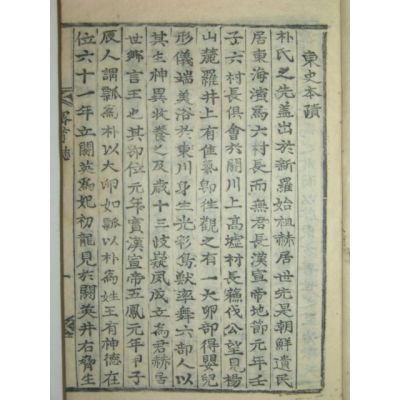 東史本蹟
朴氏之先蓋出於新羅始祖赫居世先是朝鮮遺民
居東海濱爲六村長而無君長漢宣帝地節元年壬
子六村長俱會於閼川上高墟村長蘓伐公望見楊
山麓羅井上有徃觀之有一大卵部得嬰兒
形儀端美浴於東川身生光彩鳥獸率舞六部人以
其生神異收養之及歲十三岐嶷夙成立爲君赫居
世鄕言王也其卽位元年實漢宣帝五鳳元年甲子
辰人謂瓢爲朴以大卵如瓢以朴爲姓王有神德在
位六十一年立閼英爲妃初龍見於閼英井右脅生